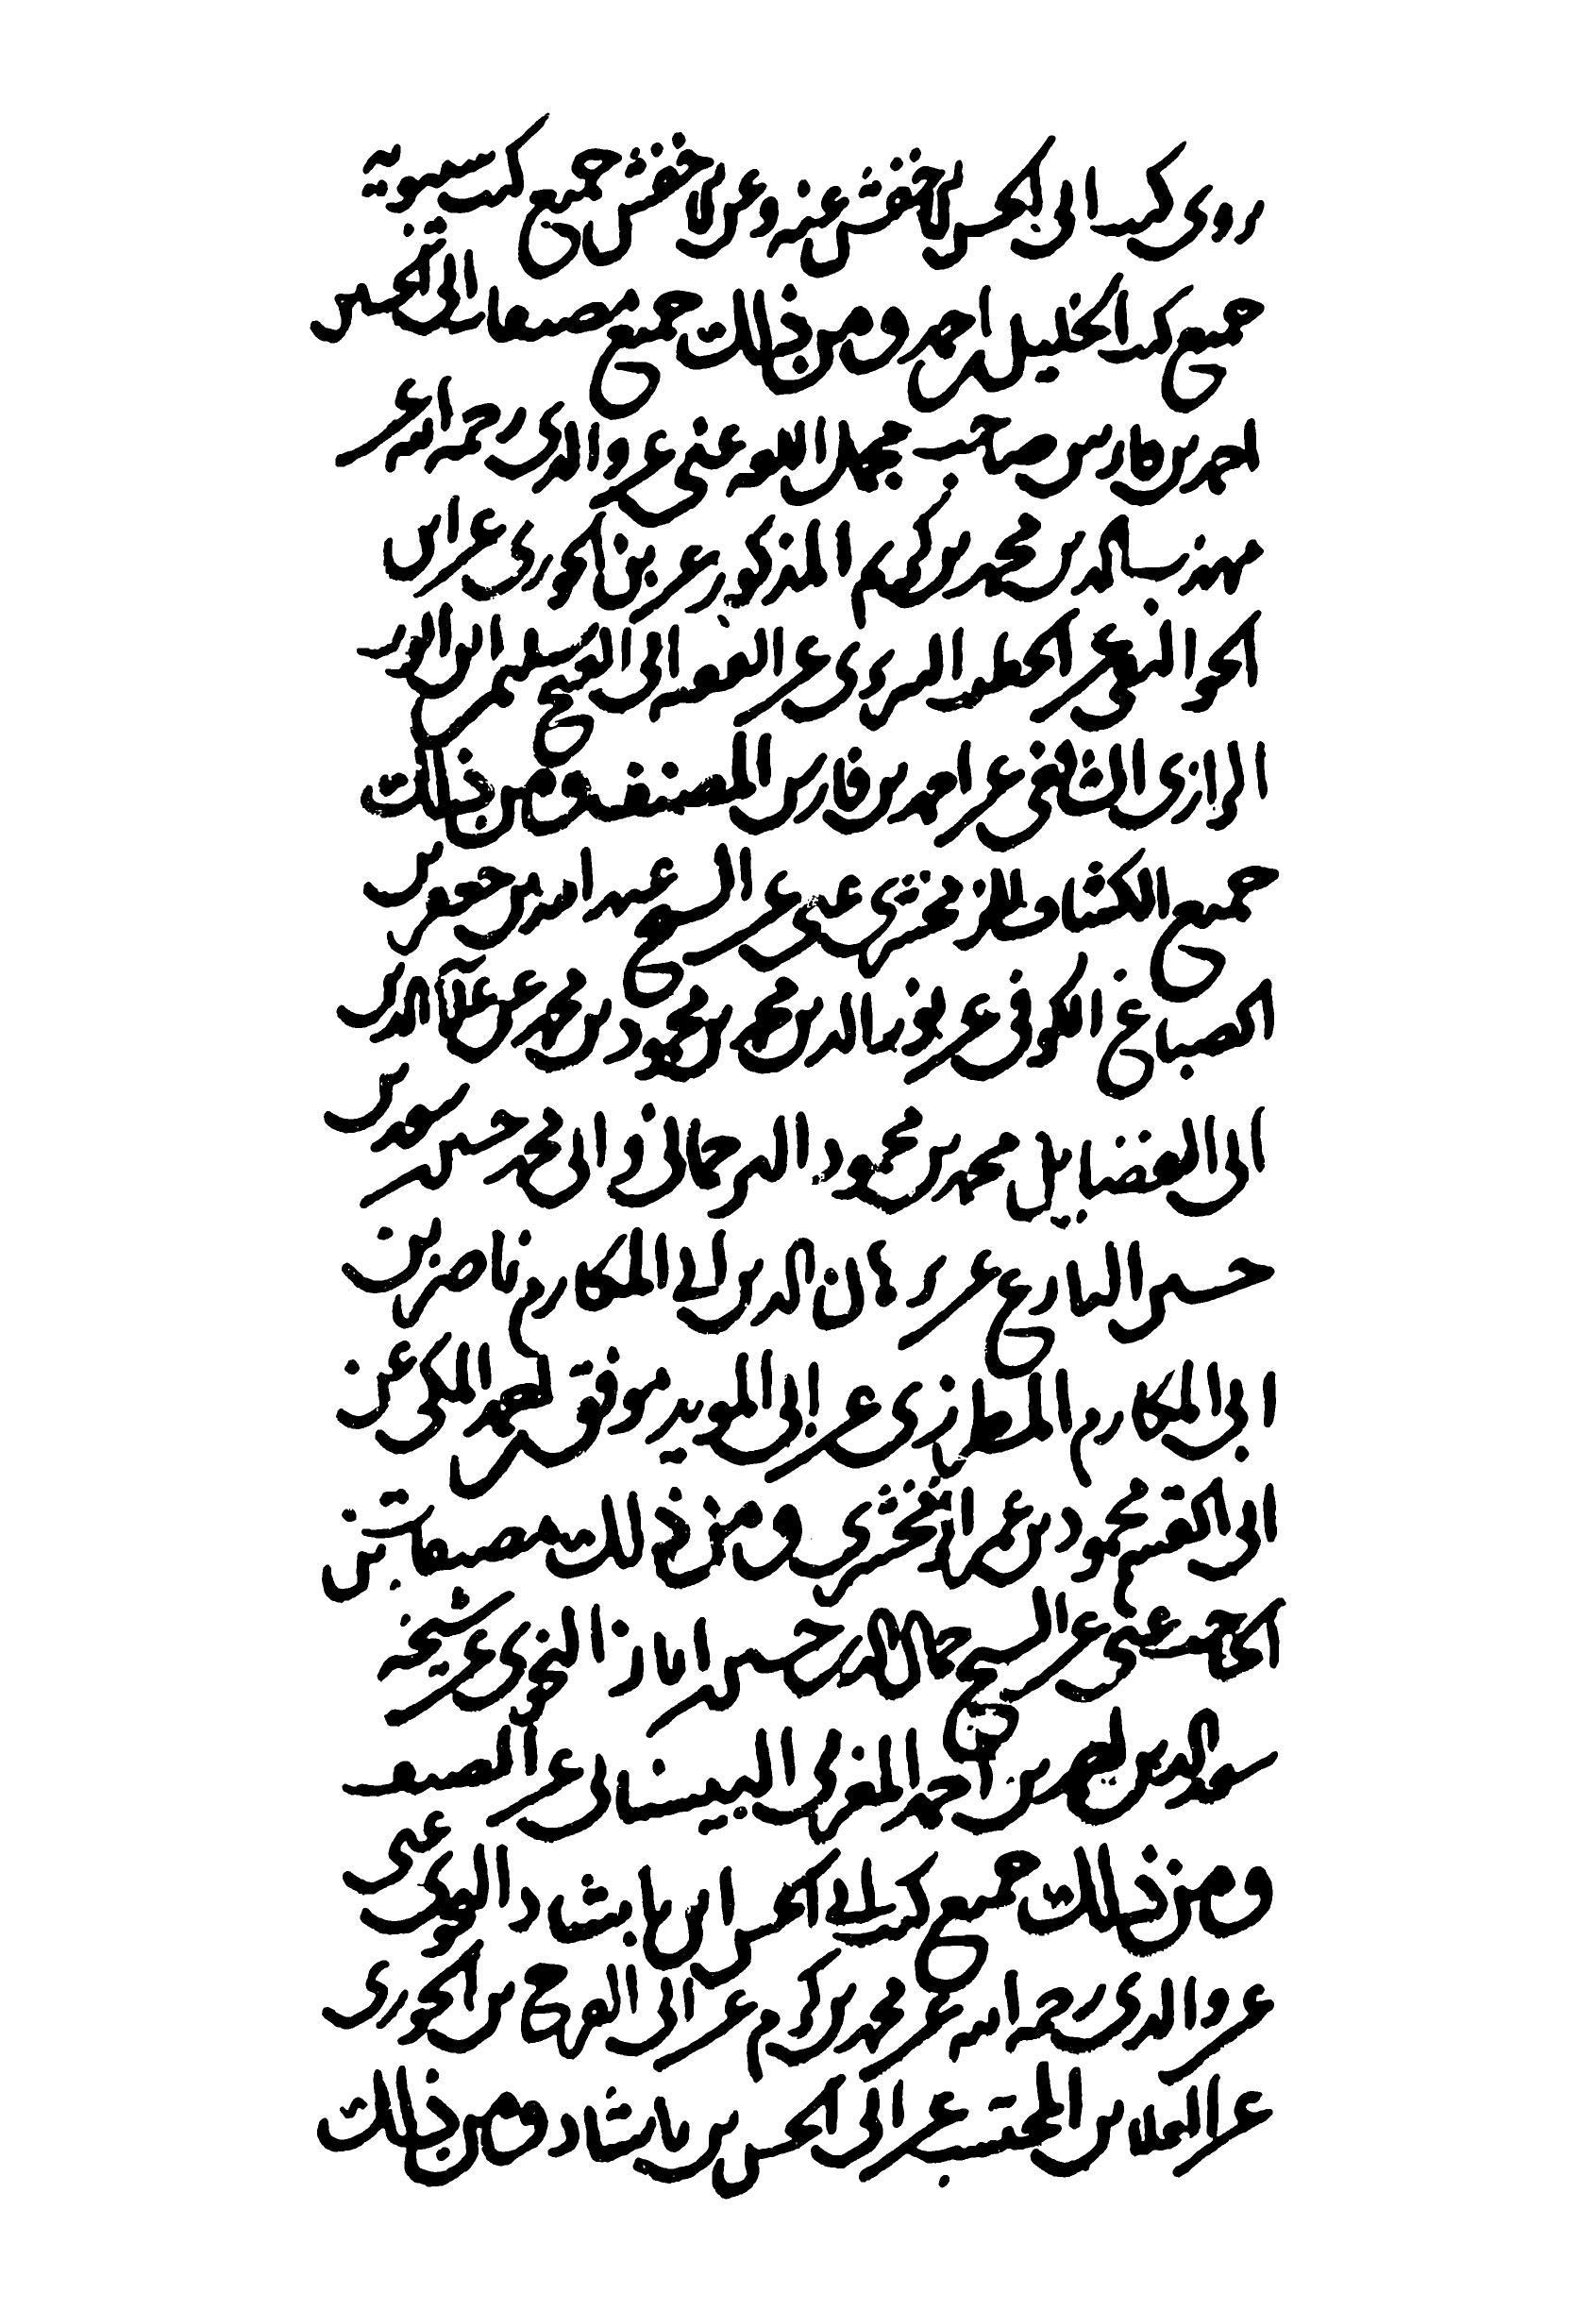 روى كتب ابى الحسن الاخفش عنه وعن الاخفش جميع كتب سيبويه
جميع كتب الخليل بن احمد ومن ذلك جميع مصنفات ابى الحسين
احمد بن فارس صاحب مجمل اللغه عنى عن والدى رحمه الله عن
مهذب الدين محمد بن كرم المذكور عن بن الجوزى عن ابن
الجواليقى عن الخطيب التبريزى عن الفقيه ابى الفتح سليم بن ايوب
الرازى الشافعى عن احمد بن فارس المصنف ومن ذلك
جميع الكشاف للزمخشرى عنى عن الشيخ عبد الله بن جعفر بن
الصباغ الكوفى عن نور الدين محمد بن محمود بن محمد عن علاء الدين
ابى الفضايل محمد بن محمود الترجمانى وابى محمد حسن بن سعد بن
حسين البارع عن برهان الدين ابى المكارم ناصر بن
ابى المكارم المطرزى عن ابى المويد موفق بن احمد المكى عن
ابى القسم محمود بن عمر الزمخشرى ومن ذلك مصنفات بن
الحاجب عنى عن الشيخ جمال الدين حسين بن اياز النحوى عن شيخه
سعد الدين احمد بن احمد المغربى البيسانى عن المصنف
ومن ذلك جميع كتب ابى الحسن ابن بابشاذ النحوى عنى
عن والدى رحمه الله عن محمد بن كرم عن ابى الفرج بن الجوزى
عن ابى العلاء بن المحتسب عن ابى الحسن بن بابشاذ ومن ذلك